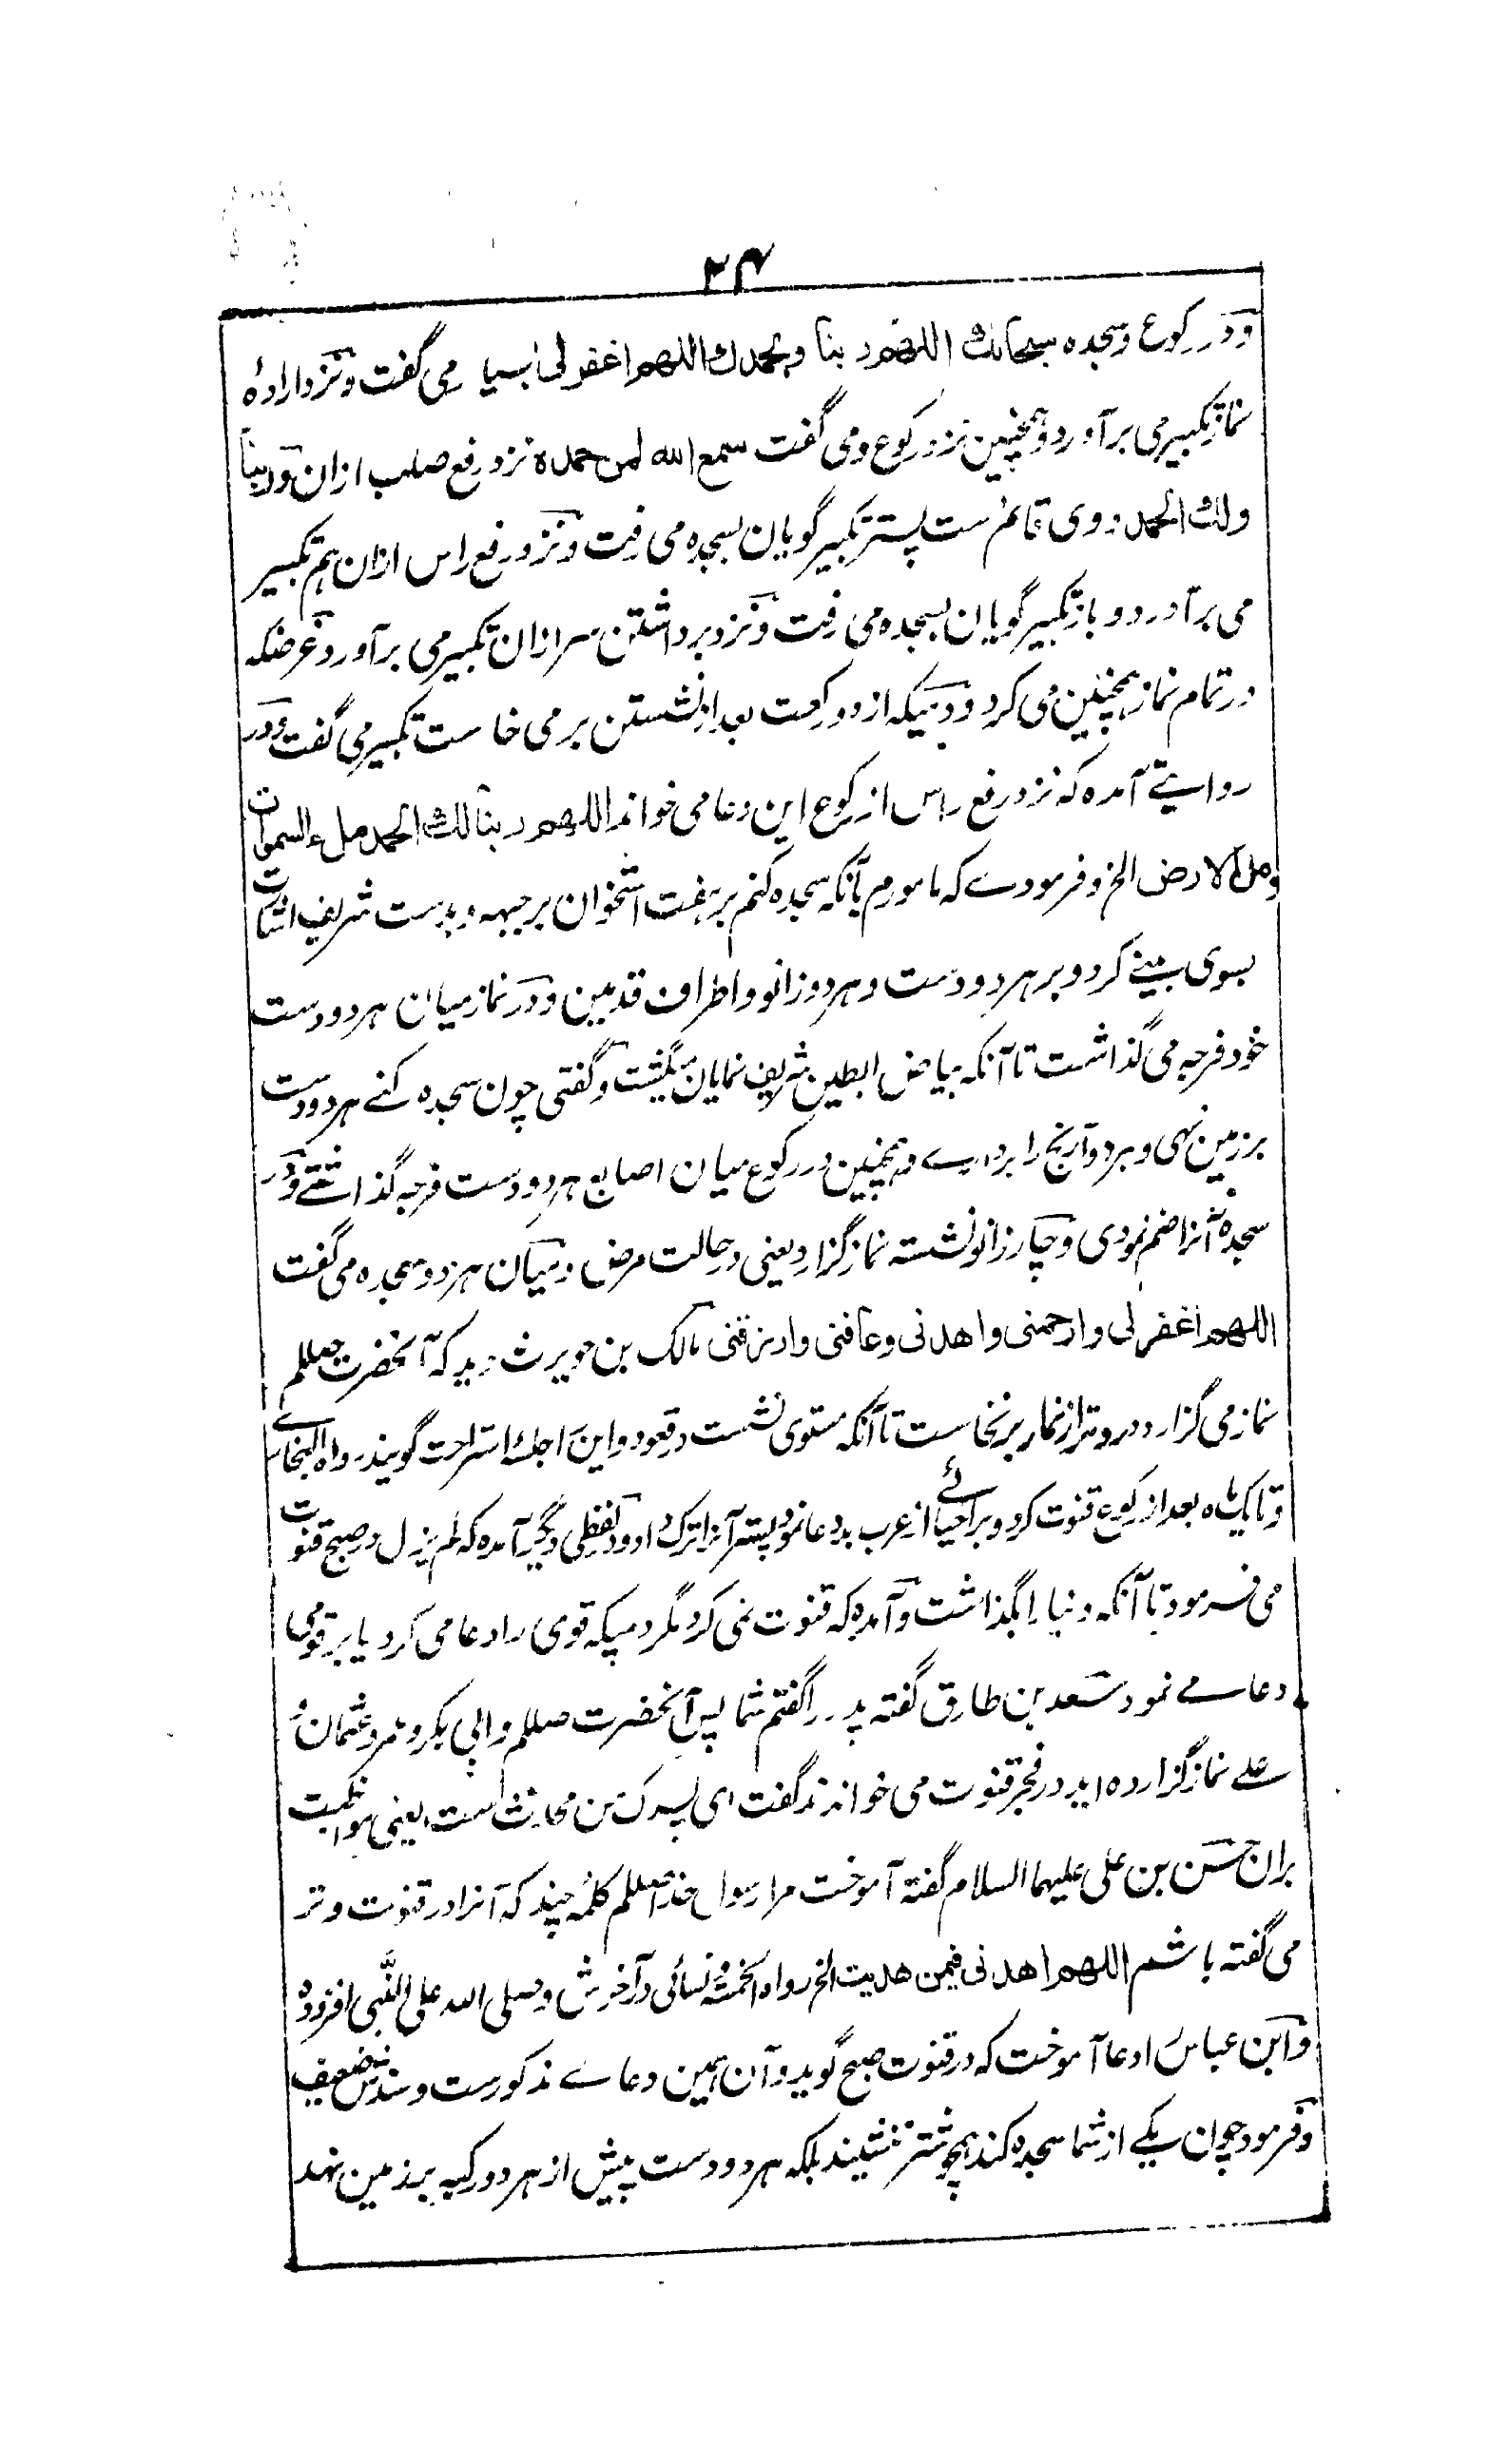 ۳۴
ودر رکوع وسجده سبحانك اللهم ربنا وبحمدك اللهم اغفر لی بسیار می گفت ونزد ارادهٔ
نماز تکبیر می برآورد وهمچنین نزد رکوع ومی گفت سمع الله لمن حمده نزد رفع صلب ازان وربنا
ولك الحمد ووی قائم ست پستر تکبیر گویان بسجده می رفت ونزد رفع راس ازان هم تکبیر
می برآورد وباز تکبیر گویان بسجده می رفت ونزد برداشتن سر ازان تکبیر می برآورد غرضکه
در تمام نماز همچنین می کرد ودمیکه از دو رکعت بعد از نشستن بر می خاست تکبیر می گفت ودر
روایتے آمده که نزد رفع راس از رکوع این دعا می خواند اللهم ربنا لك الحمد ملء السموات
وملء الارض الخ وفرمودے که مامورم بآنکه سجده کنم بر هفت استخوان بر جبهه وبدست شریف اشارت
بسوی بینے کرد وبر هر دو دست وهر دو زانو واطراف قدمین ودر نماز میان هر دو دست
خود فرجه می گذاشت تا آنکه بیاض ابطین شریف نمایان میگشت وگفتی چون سجده کنے هر دو دست
بر زمین نهی وهر دو آرنج را بردارے وهمچنین در رکوع میان اصابع هر دو دست فرجه گذاشتے ودر
سجده آنرا ضم نمودی وچار زانو نشسته نماز گزارد یعنی در حالت مرض ودر میان هر دو سجده می گفت
اللهم اغفر لی وارحمنی واهدنی وعافنی وارزقنی مالک بن حویرث دید که آنحضرت صلعم
نماز می گزارد ودر وتر از نماز بر نخاست تا آنکه مستوی نشست در قعود واین را جلسهٔ استراحت گویند رواه البخاری
وتا یک ماه بعد از رکوع قنوت کرد وبر احیائے از عرب بد دعا نمود پستر آنرا ترک داد ودر لفظی دیگر آمده که لم یزل در صبح قنوت
می فرمود تا آنکه دنیا را بگذاشت وآمده که قنوت نمی کرد مگر دمیکه قومی را دعا می کرد یا بر قومی
دعا مے نمود سعد بن طارق گفته پدر را گفتم شما پس آنحضرت صلعم وابی بکر وعمر وعثمان و
علے نماز گزارده اید در فجر قنوت می خواندند گفت ای پسرک من محدث است یعنی مواظبت
بران حسن بن علی علیهما السلام گفته آموخت مرا رسول خدا صلعم کلمهٔ چند که آنرا در قنوت وتر
می گفته باشم اللهم اهدنی فیمن هدیت الخ رواه الخمسة ونسائی در آخرش وصلی الله علی النبی افزوده
وابن عباس را دعا آموخت که در قنوت صبح گوید وآن همین دعاے مذکورست وسندش ضعیف
وفرمود چون یکے از شما سجده کند همچو شتر ننشیند بلکه هر دو دست پیش از هر دو رکبه بر زمین نهد